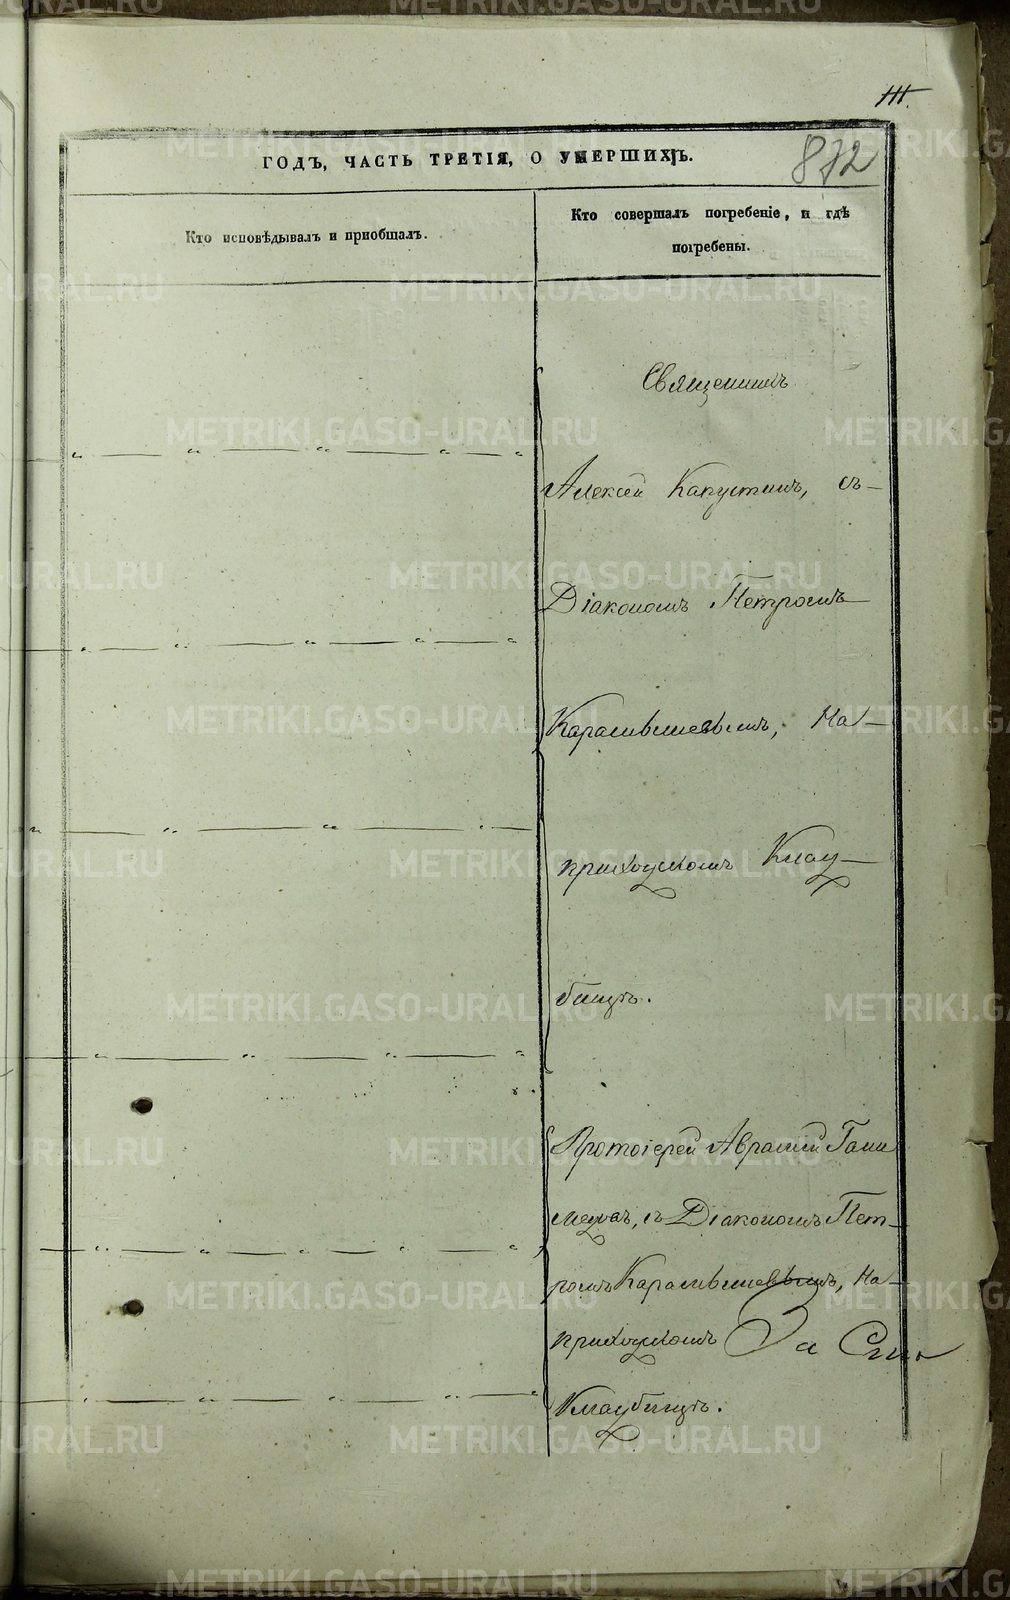 111.
872
ГОДЪ, ЧАСТЬ ТРЕТІЯ, О УМЕРШИХЪ.
Кто исповѣдывалъ и пріобщалъ.
Кто совершалъ погребеніе, и гдѣ
погребены.
Священникъ
Алексѣй Капустинъ, съ
Діакономъ Петромъ
Карасивишевымъ, на
приходскомъ Клад-
бищѣ.
Протоіерей Аврамій
съ Діакономъ Пет-
ромъ Карасивишевымъ, на
приходскомъ
Кладбищѣ.
За
METRIKI.GASO-URAL.RU